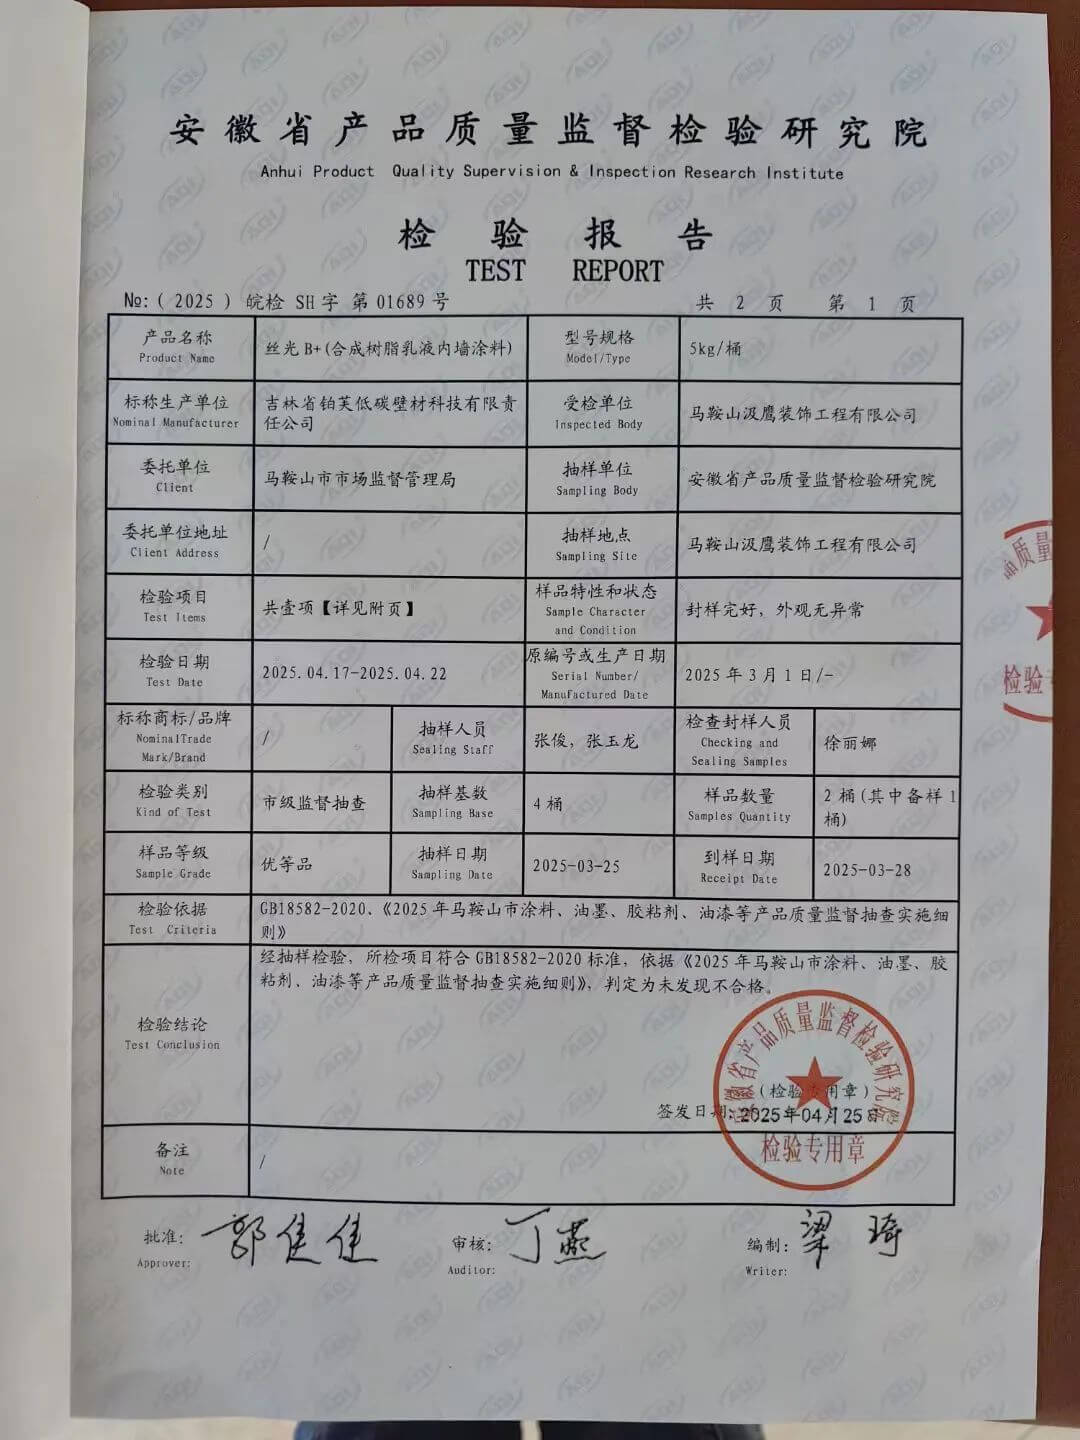 安徽省产品质量监督检验研究院
Anhui Product Quality Supervision & Inspection Research Institute
检验报告
TEST REPORT
№:(2025)皖检 SH字 第01689号 共 2 页 第 1 页
产品名称
Product Name
丝光B+(合成树脂乳液内墙涂料)
型号规格
Model/Type
5kg/桶
标称生产单位
Nominal Manufacturer
吉林省铂芙低碳壁材科技有限责
任公司
受检单位
Inspected Body
马鞍山汲鹰装饰工程有限公司
委托单位
Client
马鞍山市市场监督管理局
抽样单位
Sampling Body
安徽省产品质量监督检验研究院
委托单位地址
Client Address
/
抽样地点
Sampling Site
马鞍山汲鹰装饰工程有限公司
检验项目
Test Items
共壹项【详见附页】
样品特性和状态
Sample Character
and Condition
封样完好，外观无异常
检验日期
Test Date
2025.04.17-2025.04.22
原编号或生产日期
Serial Number/
Manufactured Date
2025年3月1日/-
标称商标/品牌
NominalTrade
Mark/Brand
/
抽样人员
Sealing Staff
张俊，张玉龙
检查封样人员
Checking and
Sealing Samples
徐丽娜
检验类别
Kind of Test
市级监督抽查
抽样基数
Sampling Base
4桶
样品数量
Samples Quantity
2桶(其中备样1
桶)
样品等级
Sample Grade
优等品
抽样日期
Sampling Date
2025-03-25
到样日期
Receipt Date
2025-03-28
检验依据
Test Criteria
GB18582-2020、《2025年马鞍山市涂料、油墨、胶粘剂、油漆等产品质量监督抽查实施细
则》
检验结论
Test Conclusion
经抽样检验，所检项目符合GB18582-2020标准，依据《2025年马鞍山市涂料、油墨、胶
粘剂、油漆等产品质量监督抽查实施细则》，判定为未发现不合格。
安徽省产品质量监督检验研究院
(检验专用章)
签发日期:2025年04月25日
检验专用章
备注
Note
/
批准: 郭佳佳
Approver:
审核: 丁燕
Auditor:
编制: 梁琦
Writer:
品质量
检验专